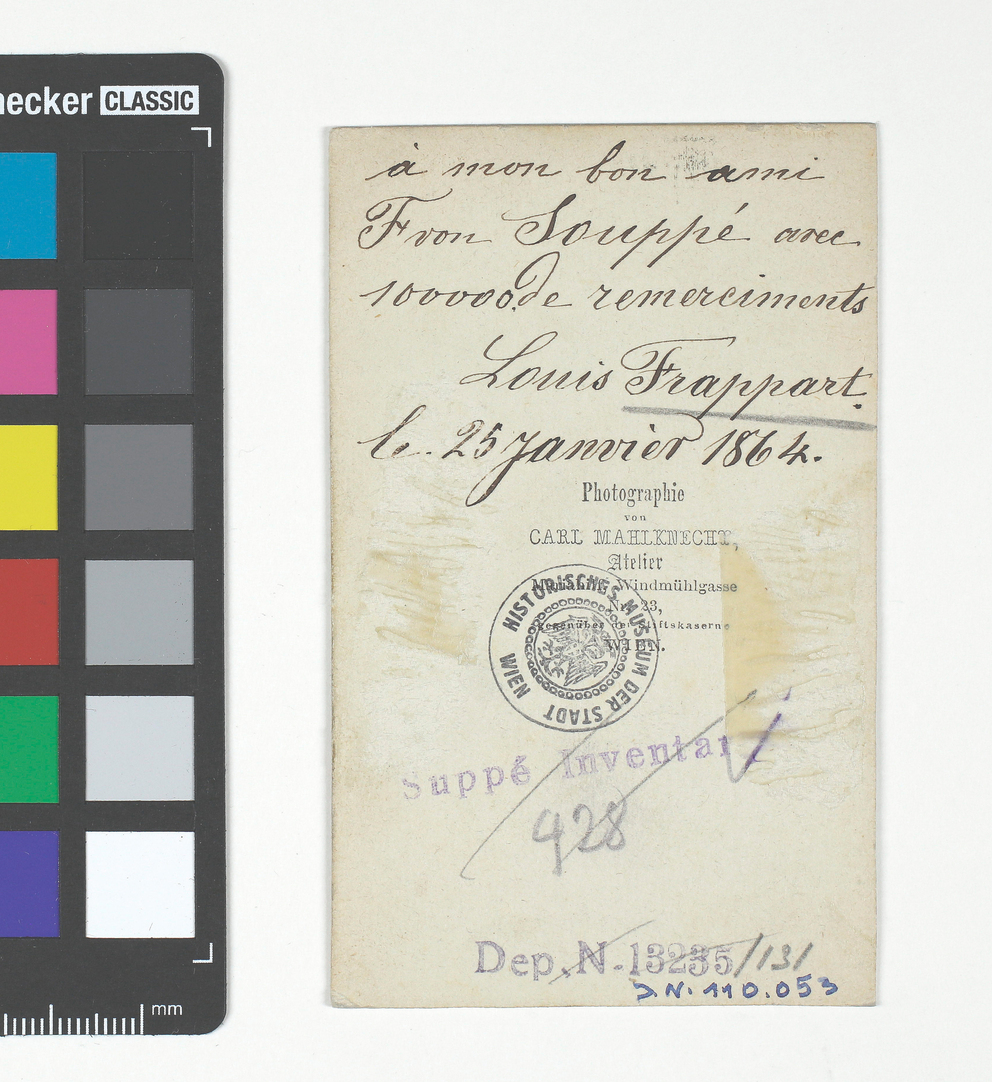 ecker CLASSIC
à mon bon ami
F von Souppé avec
100000 de remerciments
Louis Frappart.
le. 25 Janvièr 1864.
Photographie
von
CARL MAHLKNECHT,
Atelier
Windmühlgasse
Nr. 23,
gegenüber der Stiftskaserne
WIEN.
HISTORISCHES MUSEUM DER STADT WIEN
Suppé Inventar
928
Dep. N. 13235/131
J.N. 110.053
mm